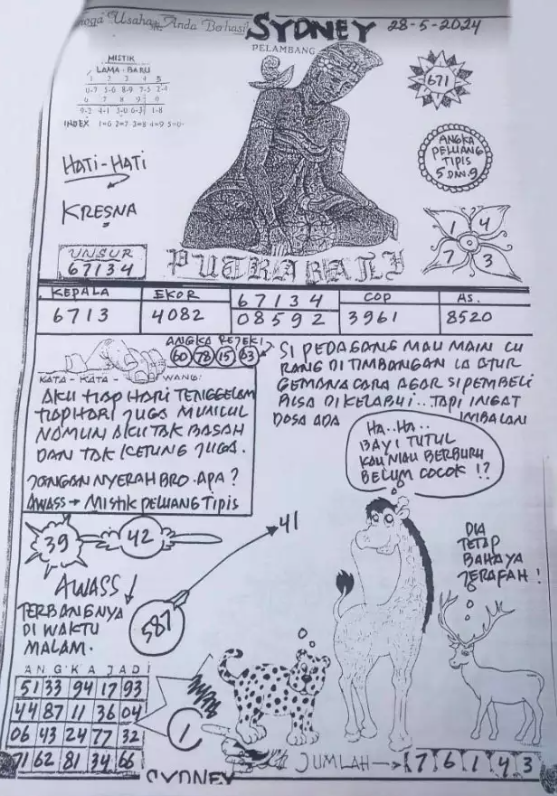 Usaha Anda Berhasil
SYDNEY
28-5-2024
PELAMBANG
MISTIK
LAMA - BARU
1 2 3 4 5
0-7 5-0 8-9 7-5 2-4
6 7 8 9
9-2 4-1 3-0 6-3 1-8
INDEX 1=6 2=7 3=8 4=9 5=0
671
ANGKA
PELUANG
TIPIS
5 DAN 9
HATI-HATI
KRESNA
1 4
7 3
UNSUR
67134
PUTRA BALI
KEPALA EKOR 67134 COP AS.
6713 4082 08592 3961 8520
ANGKA REJEKI
60 78 15 63
KATA - KATA - WANG:
AKU TIAP HARI TENGGELAM
TIAP HARI JUGA MUNCUL
NAMUN AKU TAK BASAH
DAN TAK KETUNG JUGA.
JANGAN NYERAH BRO. APA?
AWASS → MISTIK PELUANG TIPIS
SI PEDAGANG MAU MAIN CU
RANG DI TIMBANGAN IA ATUR
GEMANA CARA AGAR SI PEMBELI
BISA DI KELABUI.. TAPI INGAT
DOSA ADA IMBALAN
HA.. HA..
BAYI TUTUL
KAU MAU BERBURU
BELUM COCOK !?
39
42
41
AWASS!
TERBANGNYA
DI WAKTU
MALAM.
587
DIA
TETAP
BAHAYA
JERAFAH!
ANGKA JADI
51 33 94 17 93
44 87 11 36 04
06 43 24 77 32
71 62 81 34 66
1
JUMLAH → 7 6 1 4 3
SYDNEY